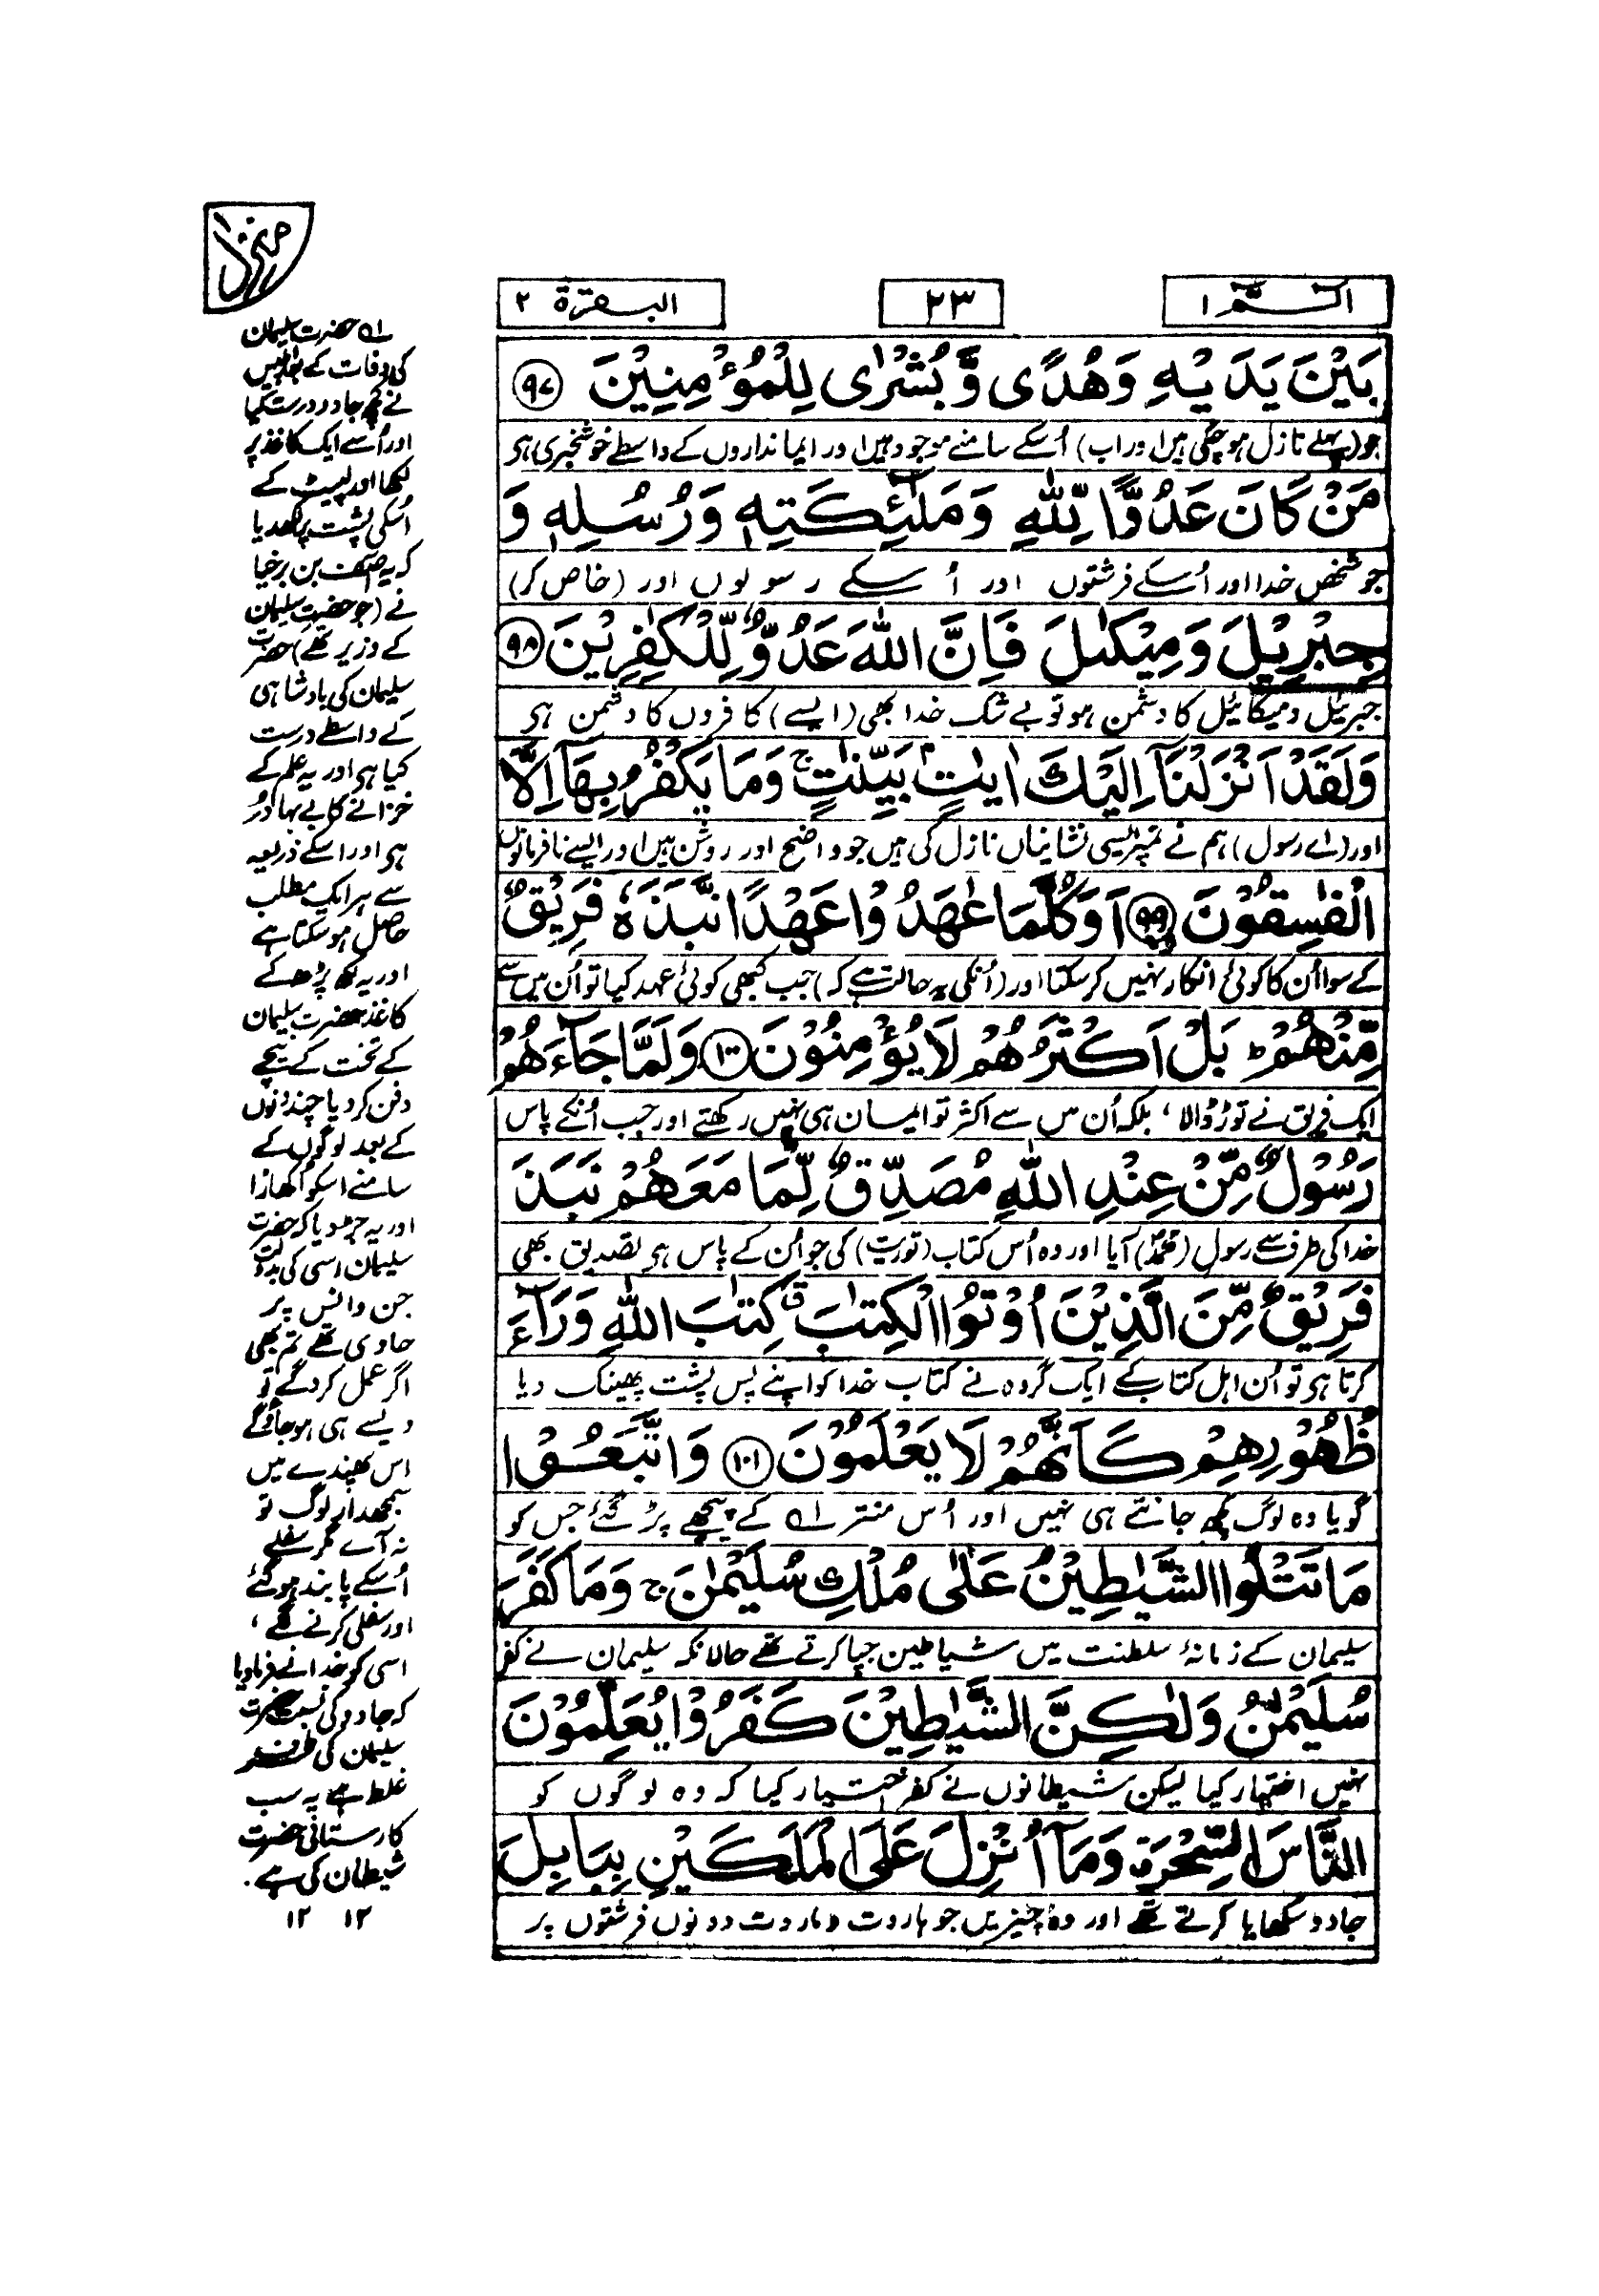 الٓـمّٓ ١
٢٣
البقرة ٢
بَيْنَ يَدَيْهِ وَهُدًى وَّبُشْرٰى لِلْمُؤْمِنِيْنَ ﴿٩٧﴾
جو (پہلے نازل ہو چکی ہیں اور اب) اُسکے سامنے موجود ہیں اور ایمانداروں کے واسطے خوشخبری ہی
مَنْ كَانَ عَدُوًّا لِّلّٰهِ وَمَلٰٓئِكَتِهٖ وَرُسُلِهٖ وَ
جو شخص خدا اور اُسکے فرشتوں اور اُسکے رسولوں اور (خاص کر)
جِبْرِيْلَ وَمِيْكٰىلَ فَاِنَّ اللّٰهَ عَدُوٌّ لِّلْكٰفِرِيْنَ ﴿٩٨﴾
جبرئیل و میکائیل کا دشمن ہو تو بے شک خدا بھی (ایسے) کافروں کا دشمن ہی
وَلَقَدْ اَنْزَلْنَآ اِلَيْكَ اٰيٰتٍۢ بَيِّنٰتٍ ۚ وَمَا يَكْفُرُ بِهَآ اِلَّا
اور (اے رسول) ہم نے تمپر ایسی نشانیاں نازل کی ہیں جو واضح اور روشن ہیں اور ایسے نافرمانوں
الْفٰسِقُوْنَ ﴿٩٩﴾ اَوَكُلَّمَا عٰهَدُوْا عَهْدًا نَّبَذَهٗ فَرِيْقٌ
کے سوا اُن کا کوئی انکار نہیں کر سکتا اور (اُنکی یہ حالت ہے کہ) جب کبھی کوئی عہد کیا تو اُن میں سے
مِّنْهُمْ ؕ بَلْ اَكْثَرُهُمْ لَا يُؤْمِنُوْنَ ﴿١٠٠﴾ وَلَمَّا جَآءَهُمْ
ایک فریق نے توڑ ڈالا، بلکہ اُن میں سے اکثر تو ایمان ہی نہیں رکھتے اور جب اُنکے پاس
رَسُوْلٌ مِّنْ عِنْدِ اللّٰهِ مُصَدِّقٌ لِّمَا مَعَهُمْ نَبَذَ
خدا کی طرف سے رسول (محمدؐ) آیا اور وہ اُس کتاب (توریت) کی جو اُن کے پاس ہی تصدیق بھی
فَرِيْقٌ مِّنَ الَّذِيْنَ اُوْتُوا الْكِتٰبَ ۙ كِتٰبَ اللّٰهِ وَرَآءَ
کرتا ہی تو اُن اہل کتاب کے ایک گروہ نے کتاب خدا کو اپنے پس پشت پھینک دیا
ظُهُوْرِهِمْ كَاَنَّهُمْ لَا يَعْلَمُوْنَ ﴿١٠١﴾ وَاتَّبَعُوْا
گویا وہ لوگ کچھ جانتے ہی نہیں اور اُس منتر لے کے پیچھے پڑ گئے جس کو
مَا تَتْلُوا الشَّيٰطِيْنُ عَلٰى مُلْكِ سُلَيْمٰنَ ۚ وَمَا كَفَرَ
سلیمان کے زمانۂ سلطنت میں شیاطین جپا کرتے تھے حالانکہ سلیمان نے کفر
سُلَيْمٰنُ وَلٰكِنَّ الشَّيٰطِيْنَ كَفَرُوْا يُعَلِّمُوْنَ
نہیں اختیار کیا لیکن شیطانوں نے کفر اختیار کیا کہ وہ لوگوں کو
النَّاسَ السِّحْرَ ۤ وَمَآ اُنْزِلَ عَلَى الْمَلَكَيْنِ بِبَابِلَ
جادو سکھایا کرتے تھے اور وہ چیزیں جو ہاروت و ماروت دونوں فرشتوں پر
منزل ۱
لے حضرت سلیمان
کی وفات کے بعد ابلیس
نے کچھ جادو درست کیا
اور اُسے ایک کاغذ پر
لکھا اور لپیٹ کے
اُسکی پشت پر لکھدیا
کہ یہ آصف بن برخیا
نے (جو حضرت سلیمان
کے وزیر تھے) حضرت
سلیمان کی بادشاہی
کے واسطے درست
کیا ہی اور یہ علم کے
خزانے کا بے بہا دُر
ہی اور اسکے ذریعہ
سے ہر ایک مطلب
حاصل ہو سکتا ہے
اور یہ کچھ پڑھ کے
کاغذ حضرت سلیمان
کے تخت کے نیچے
دفن کر دیا چند دنوں
کے بعد لوگوں کے
سامنے اسکو اُکھاڑا
اور یہ جڑ دیا کہ حضرت
سلیمان اسی کی بدولت
جن و انس پر
حاوی تھے تم بھی
اگر عمل کروگے تو
ویسے ہی ہو جاؤگے
اس پھندے میں
سمجھدار لوگ تو
نہ آے مگر سفلے
اُسکے پابند ہو گئے
اور سفلی کرنے لگے،
اسی کو خدا نے فرمادیا
کہ جادو کی نسبت حضرت
سلیمان کی طرف
غلط ہے یہ سب
کارستانی حضرت
شیطان کی ہے۔
۱۲ ۱۲